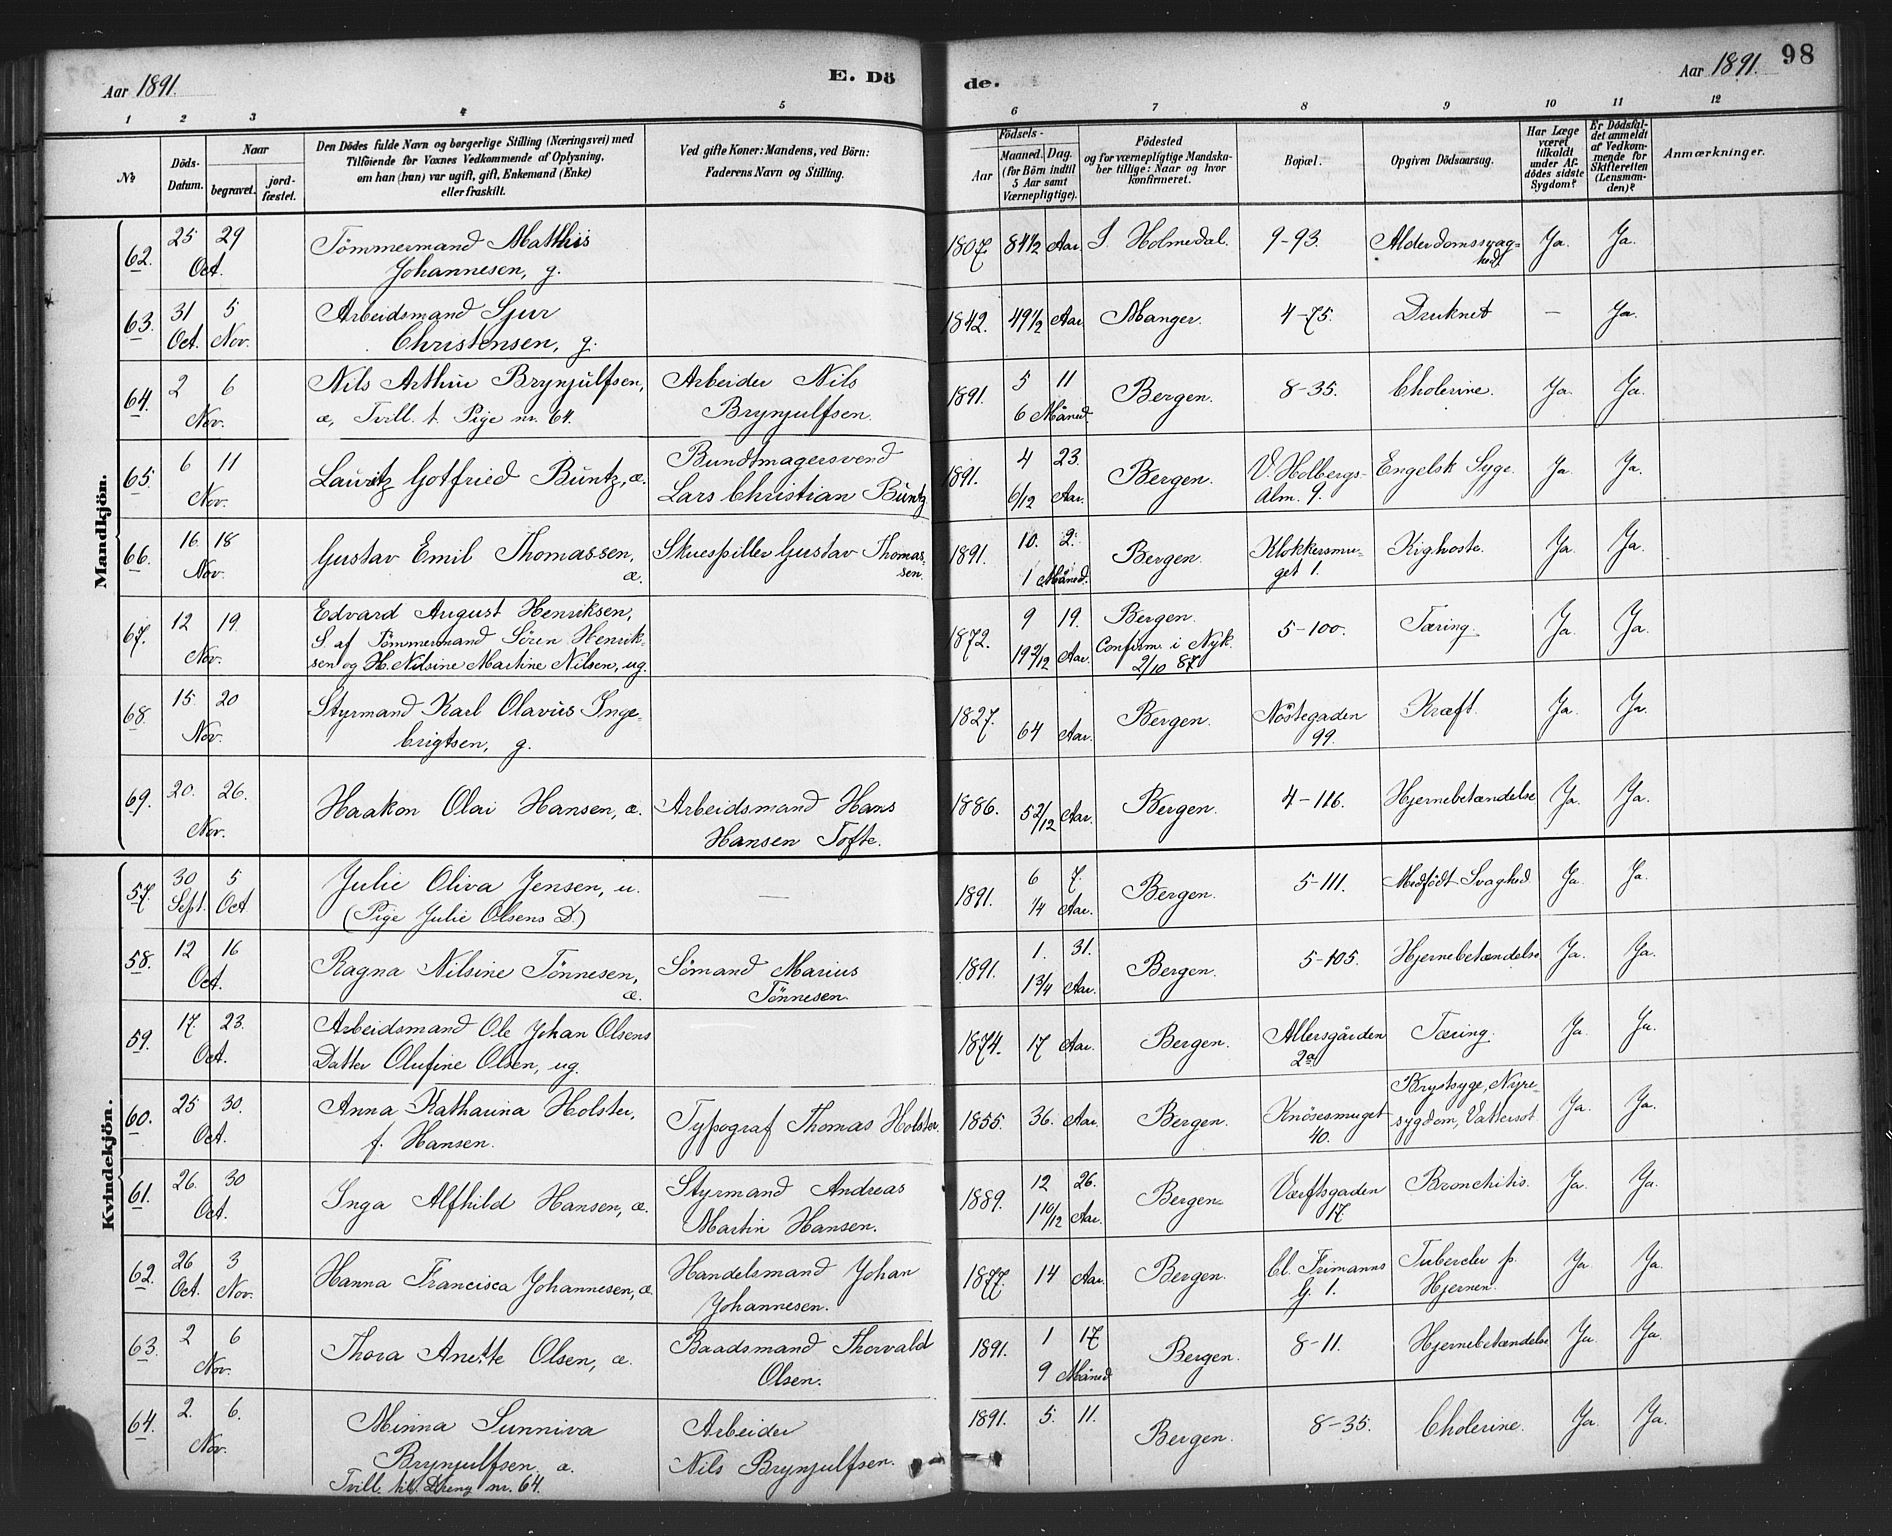 Aar 1891.
E. Dö
de.
Aar 1891.
98
1 2 3 4 5 6 7 8 9 10 11 12
No
Döds-
Datum.
Naar
begravet.
jord-
fæstet.
Den Dödes fulde Navn og borgerlige Stilling (Næringsvei) med
Tilföiende for Voxnes Vedkommende af Oplysning,
om han (hun) var ugift, gift, Enkemand (Enke)
eller fraskilt.
Ved gifte Koner: Mandens, ved Börn:
Faderens Navn og Stilling.
Födsels-
Aar
Maaned. Dag.
(for Börn indtil
5 Aar samt
Værnepligtige).
Födested
og for værnepligtige Mandska-
ber tillige: Naar og hvor
konfirmeret.
Bopæl.
Opgiven Dödsaarsag.
Har Læge
været
tilkaldt
under Af-
dödes sidste
Sygdom?
Er Dödsfal-
det anmeldt
af Vedkom-
mende for
Skifteretten
(Lensman-
den)?
Anmærkninger.
Mandkjön.
62. 25 29 Oct. Tömmermand Matthis
Johannesen, g.
1807. 84 1/2 Aar. S. Holmedal. 9-93. Alderdomssvag-
hed. Ja. Ja.
63. 31 Oct. 5 Nov. Arbeidsmand Sjur
Christensen, g.
1842. 49 1/2 Aar. Manger. 4-75. Druknet — Ja.
64. 2 6 Nov. Nils Arthur Brynjulfsen,
æ, Tvill. t. Pige nr. 64.
Arbeider Nils
Brynjulfsen.
1891. 5 11
6 Måned. Bergen. 8-35. Cholerine. Ja. Ja.
65. 6 11 Nov. Lauritz Gotfried Buntz, æ.
Bundtmagersvend
Lars Christian Buntz
1891. 4 23.
6/12 Aar. Bergen. V. Holbergs-
Alm. 9. Engelsk Syge. Ja. Ja.
66. 16. 18 Nov. Gustav Emil Thomassen,
æ.
Skuespiller Gustav Thomas-
sen.
1891. 10. 2.
1 Måned. Bergen. Klokkersmu-
get 1. Kighoste. Ja. Ja.
67. 12 19. Nov. Edvard August Henriksen,
S. af Tömmermand Sören Henrik-
sen og H. Nilsine Martine Nilsen, ug.
1872. 9 19.
19 2/12 Aar. Bergen.
Confirm. i Nyk.
2/10 87. 5-100. Tæring. Ja. Ja.
68. 15. 20 Nov. Styrmand Karl Olavus Inge-
brigtsen, g.
1827. 64 Aar. Bergen. Nöstegaden
99. Kræft. Ja. Ja.
69. 20. 26. Nov. Haakon Olai Hansen, æ.
Arbeidsmand Hans
Hansen Tofte.
1886. 5 2/12 Aar. Bergen. 4-126. Hjernebetændelse Ja. Ja.
Kvindekjön.
57. 30 Sept. 5 Oct Julie Oliva Jensen, u.
(Pige Julie Olsens D.)
—
1891. 6 7.
1/4 Aar. Bergen. 5-111. Medfödt Svaghed. Ja. Ja.
58. 12 16 Oct. Ragna Nilsine Tönnesen,
æ.
Sömand Marius
Tönnesen.
1891. 1. 31.
1 3/4 Aar. Bergen. 5-105. Hjernebetændelse Ja. Ja.
59. 17. 23. Oct. Arbeidsmand Ole Johan Olsens
Datter Olufine Olsen, ug.
1874. 17 Aar. Bergen. Allersgården
2a Tæring. Ja. Ja.
60. 25 30. Oct. Anna Katharina Holster,
f. Hansen.
Typograf Thomas Holster.
1855. 36. Aar. Bergen. Knösesmuget
40. Brystsyge, Nyre-
sygdom, Vattersot. Ja. Ja.
61. 26. 30 Oct. Inga Alfhild Hansen, æ.
Styrmand Andreas
Martin Hansen.
1889. 12 26.
1 10/12 Aar. Bergen. Værftsgaden
17. Bronchitis. Ja. Ja.
62. 26 Oct. 3 Nov. Hanna Francisca Johannesen, æ.
Handelsmand Johan
Johannesen.
1877. 14 Aar. Bergen. Cl. Frimanns
G. 1. Tubercler p.
Hjernen. Ja. Ja.
63. 2 6 Nov. Thora Anette Olsen, æ.
Baadsmand Thorvald
Olsen.
1891. 1 17
9 Måned Bergen. 8-11. Hjernebetændelse Ja. Ja.
64. 2. 6. Nov. Minna Sunniva
Brynjulfsen, æ.
Tvill. til Dreng nr. 64.
Arbeider
Nils Brynjulfsen.
1891. 5. 11. Bergen. 8-35. Cholerine. Ja. Ja.